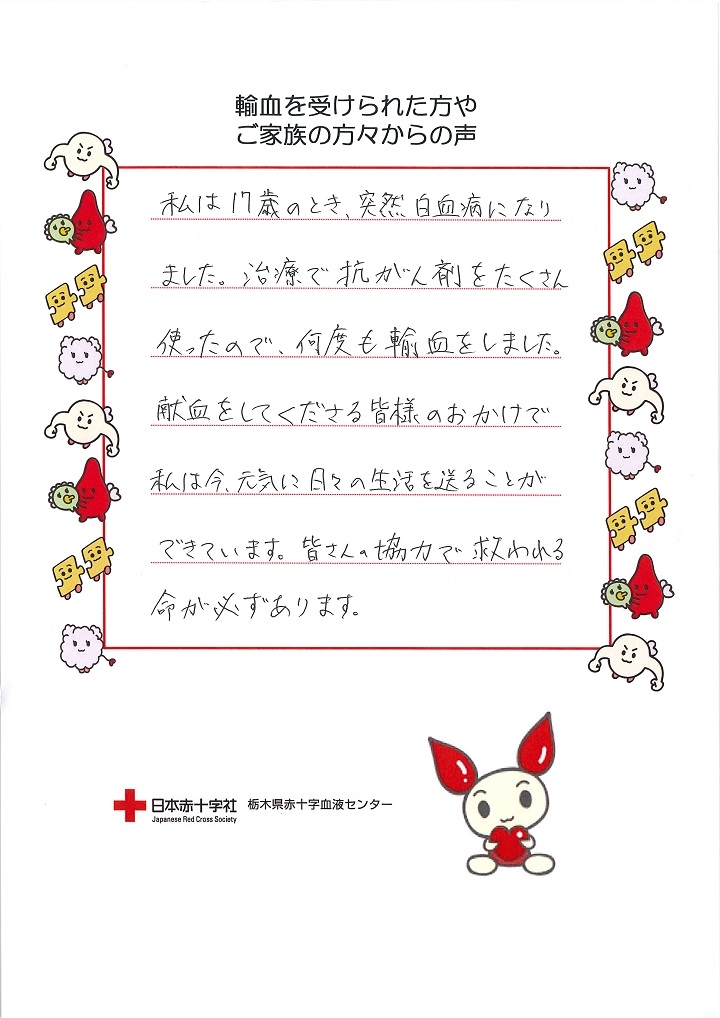 輸血を受けられた方や
ご家族の方々からの声
私は17歳のとき、突然白血病になり
ました。治療で抗がん剤をたくさん
使ったので、何度も輸血をしました。
献血をしてくださる皆様のおかけで
私は今、元気に日々の生活を送ることが
できています。皆さんの協力で救われる
命が必ずあります。
日本赤十字社 栃木県赤十字血液センター
Japanese Red Cross Society